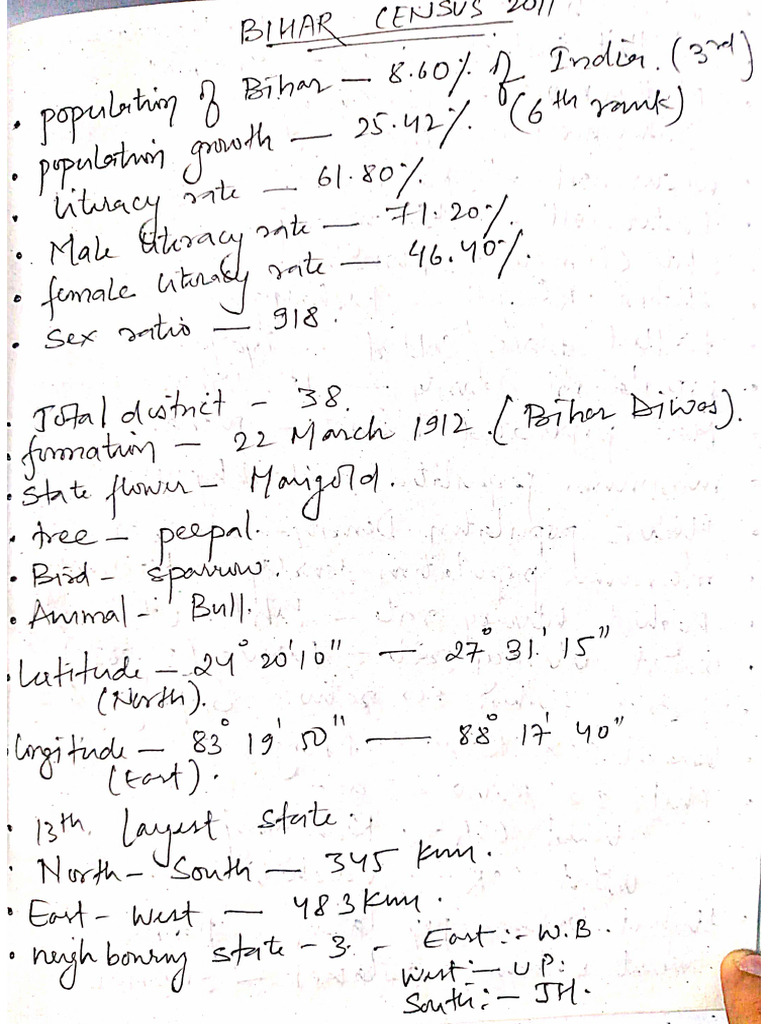 BIHAR CENSUS 2011
• population of Bihar — 8.60% of India. (3rd)
• population growth — 25.42%. (6th rank)
• literacy rate — 61.80%.
• Male literacy rate — 71.20%.
• female literacy rate — 46.40%.
• Sex ratio — 918.
• Total district - 38.
• formation — 22 March 1912. (Bihar Diwas).
• State flower - Marigold.
• tree - peepal.
• Bird - sparrow.
• Animal - Bull.
• Latitude — 24° 20' 10" — 27° 31' 15"
(North).
• Longitude — 83° 19' 50" — 88° 17' 40"
(East).
• 13th largest state.
• North - South — 345 Km.
• East - West — 483 Km.
• neighbouring state - 3. - East :- W.B.
West :- U P.
South :- JH.